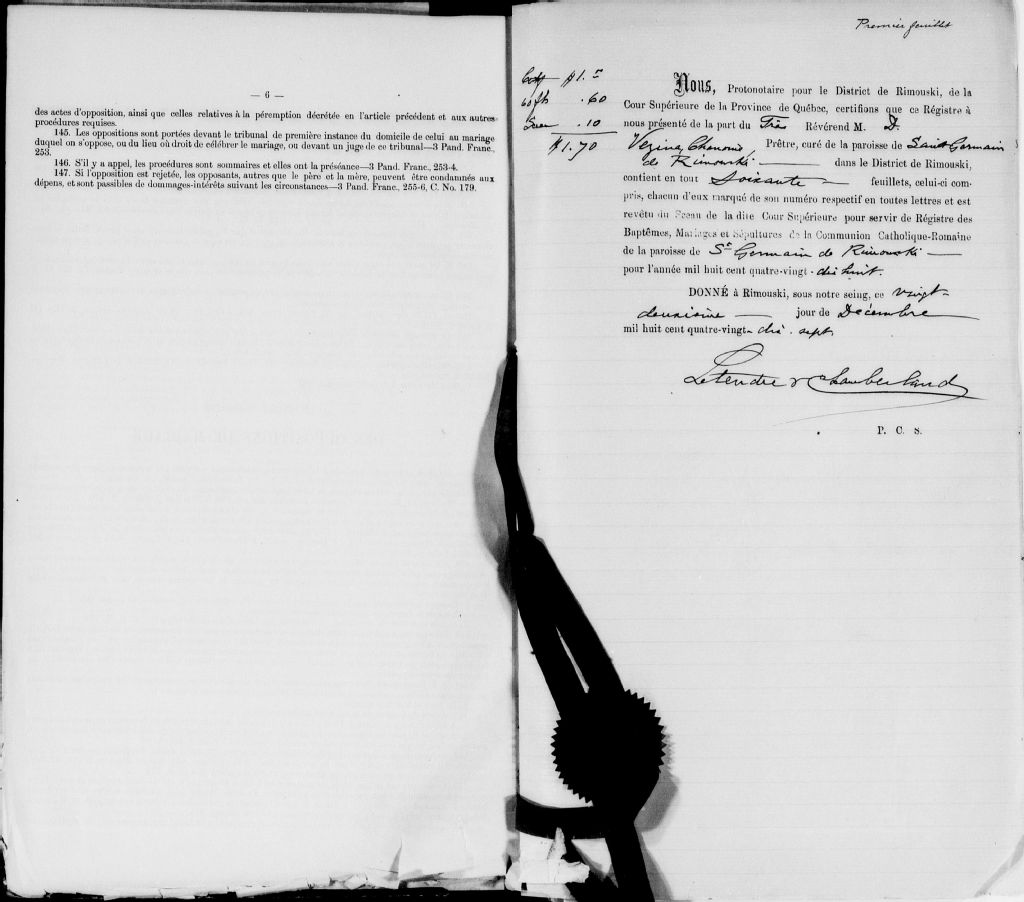 — 6 —
des actes d'opposition, ainsi que celles relatives à la péremption décrétée en l'article précédent et aux autres
procédures requises.
145. Les oppositions sont portées devant le tribunal de première instance du domicile de celui au mariage
duquel on s'oppose, ou du lieu où droit de célébrer le mariage, ou devant un juge de ce tribunal—3 Pand. Franc.,
253.
146. S'il y a appel, les procédures sont sommaires et elles ont la préséance—3 Pand. Franc., 253-4.
147. Si l'opposition est rejetée, les opposants, autres que le père et la mère, peuvent être condamnés aux
dépens, et sont passibles de dommages-intérêts suivant les circonstances—3 Pand. Franc., 255-6, C. No. 179.
Premier feuillet
$1.
.60
.10
$1.70
Nous, Protonotaire pour le District de Rimouski, de la
Cour Supérieure de la Province de Québec, certifions que ce Régistre à
nous présenté de la part du Très Révérend M. D.
Vezina, Chanoine, Prêtre, curé de la paroisse de Saint Germain
de Rimouski — dans le District de Rimouski,
contient en tout Soixante — feuillets, celui-ci com-
pris, chacun d'eux marqué de son numéro respectif en toutes lettres et est
revêtu du Sceau de la dite Cour Supérieure pour servir de Régistre des
Baptêmes, Mariages et Sépultures de la Communion Catholique-Romaine
de la paroisse de St Germain de Rimouski —
pour l'année mil huit cent quatre-vingt-dix huit.
DONNÉ à Rimouski, sous notre seing, ce vingt-
deuxième — jour de Décembre —
mil huit cent quatre-vingt-dix-sept.
Letendre & Chamberland
P. C. S.